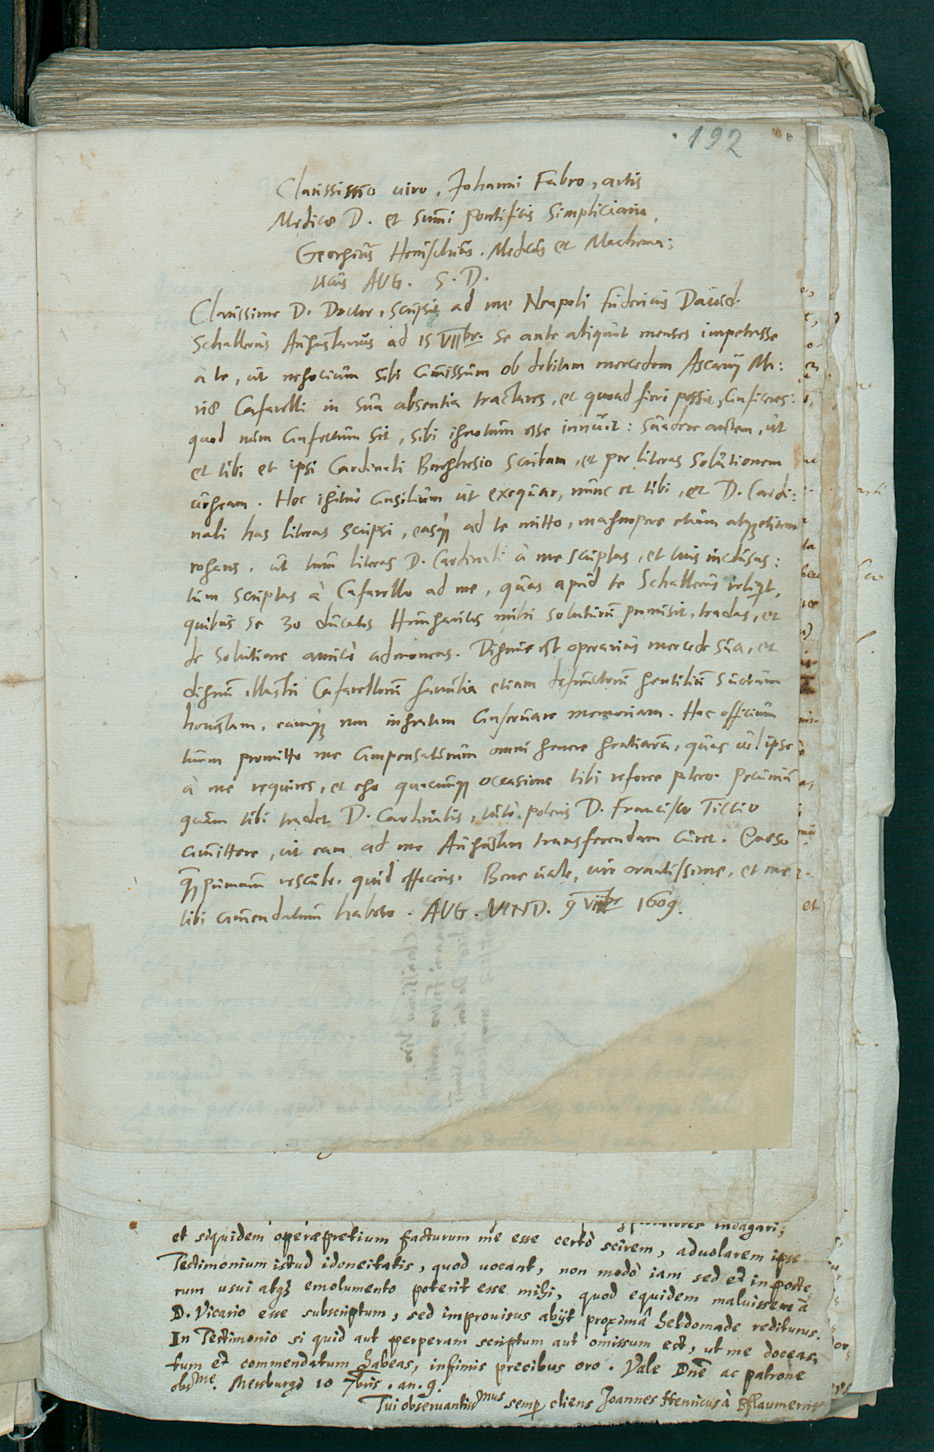 192
Clarissimo viro, Johanni Fabro, artis
Medicae D. et Summi Pontificis Simpliciario,
Georgius Henischius. Medicus et Mathema:
ticus AUG. S. D.
Clarissime D. Doctor, scripsit ad me Neapoli Fridericus David
Schallerus Augustanus ad 15 VIIbr. se ante aliquot menses impetrasse
a te, ut negocium sibi commissum ob debitam mercedem Ascanij Ma:
riae Cafarelli in sua absentia tractares, et quoad fieri possit, conficeres:
quod num confectum sit, sibi ignotum esse innuit: suadere autem, ut
et tibi et ipsi Cardinali Burghesio scribam, et per literas solutionem
urgeam. Hoc igitur consilium ut exequar, nunc et tibi, et D. Cardi:
nali has literas scripsi, easq́ ad te mitto, magnopere etiam atq́ etiam
rogans, ut tum literas D. Cardinali à me scriptas, et tuis inclusas:
tum scriptas à Cafarello ad me, quas apud te Schallerus reliqt,
quibus se 30 ducatos Hungaricos mihi soluturum promisit, tradas, et
de solutione amicè admoneas. Dignus est operarius mercede sua, et
dignum illustri Cafarellorum familia etiam defunctorum gentilium suorum
honestam, eamq́ non ingratam conservare memoriam. Hoc officium
tuum promitto me compensaturum omni genere gratiarum, quas vel ipse
à me requires, et ego quacunq́ occasione tibi referre potero. Pecuniam
quam tibi tradet D. Cardinalis, tutò poteris D. Francisco
committere, ut eam ad me Augustam transferendam curet. Quaeso
q́ primum rescribe, quid effeceris. Bene vale, vir ornatissime, et me
tibi commendatum habeto. AUG. VIND. 9 1609.
indagari;
et siquidem operaepretium facturum me esse certò scirem, advolarem ipse
Testimonium istud idoneitatis, quod vocant, non modò iam sed et in poste
rum usui atq́ emolumento poterit esse mihi, quod equidem maluissem à
D. Vicario esse subscriptum, sed improvisus abijt proximâ hebdomade rediturus.
In Testimonio si quid aut perperam scriptum aut omissum est, ut me doceas,
tum et commendatum habeas, infimis precibus oro. Vale Dne ac patrone
obsme. Mersburgo 10 7bris. an. 9.
Tui observantissmus semp cliens Joannes Henricus à Pflaumern